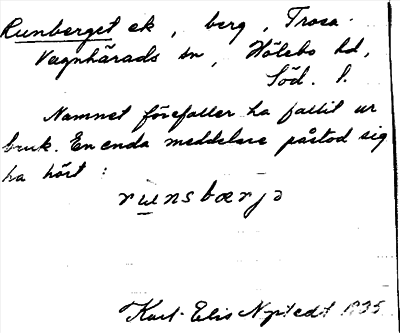 Runberget ek, berg, Trosa-
Vagnhärads sn, Hölebo hd,
Söd. l.
Namnet förefaller ha fallit ur
bruk. En enda meddelare påstod sig
ha hört:
runsbærjə
Karl-Elis Nystedt 1935